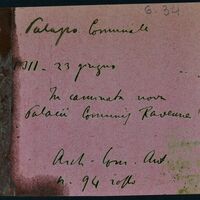 6.34
Palazzo Comunale
1311 - 23 giugno
In caminata nova
Palacii Comunis Ravenne
Arch. Com. Ant
n. 94 rosso